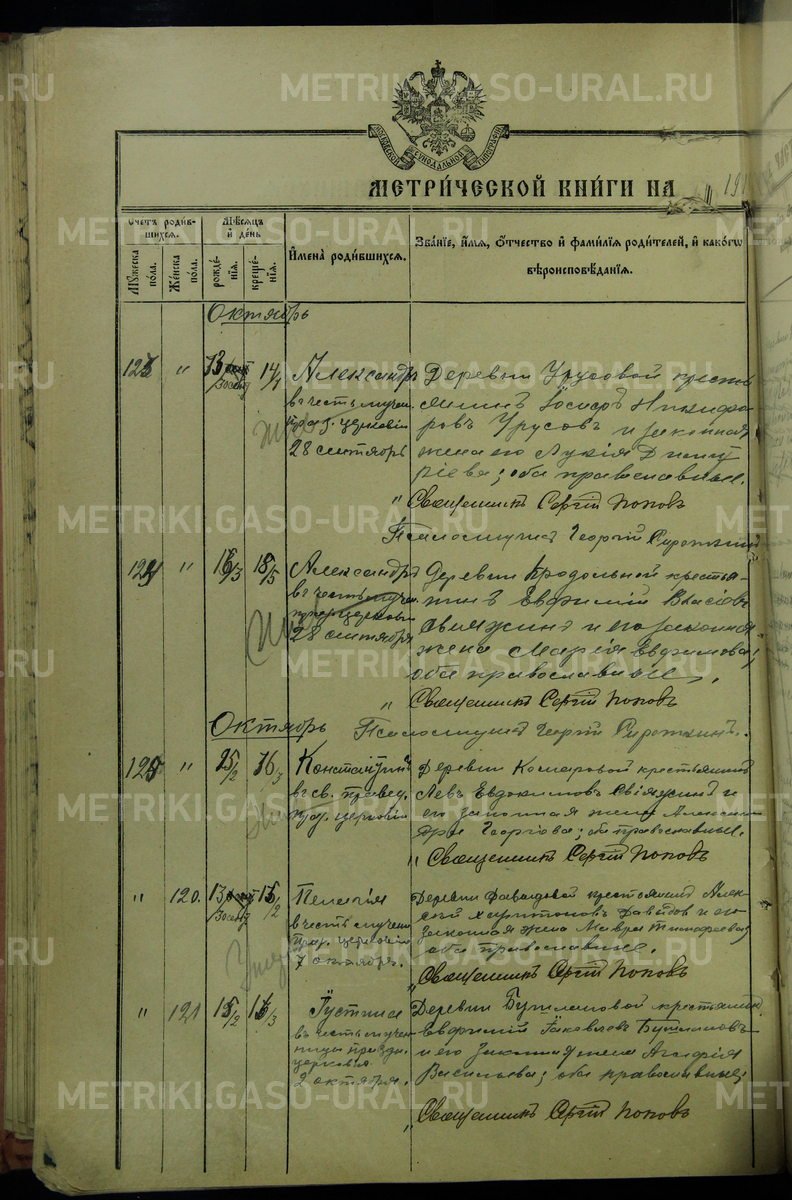 METRIKI.GASO-URAL.RU
МОСКОВСКОЙ СѴНОДАЛЬНОЙ ТИПОГРАФІИ
МЕТРИ́ЧЕСКОЙ КНИ́ГИ НА 191
Счетъ роди́в-
шихсѧ.
Мꙋ́жеска
по́ла.
Же́нска
по́ла.
Мѣ́сѧцъ
и҆ де́нь
рожде́-
нїѧ.
креще́-
нїѧ.
И҆мена̀ роди́вшихсѧ.
Зва́нїе, и҆́мѧ, ѻ҆́тчество и҆ фами́лїѧ роди́телей, и҆ какѡ́гѡ
вѣроисповѣ́данїѧ.
Октябрь
" 14/ Александръ
въ честь мучен.
празд. церковію
28 сентябрь
Деревни Урусовой кресть
янинъ Іосифъ Никифо
ровъ Урусовъ и законная
жена его Лукія Дмит
ріева; оба православные.
Священникъ Сергій Поповъ
Псаломщикъ Георгій Сироткинъ
" 18/5 Александръ
въ честь мучен.
28 сентября
Деревни Продольной кресть-
нинъ Евфимій Власовъ
и его законная
жена Марія Евфимова;
оба православные,
Священникъ Сергій Поповъ
Октябрь Псаломщикъ Георгій Сироткинъ.
125 " 15/2 16/3 Константинъ
въ св. правед.
праз. церковію
Деревни Комаровой крестьянинъ
Левъ Евдокимовъ и
его законная жена Алексан
дра Георгіева; оба православные.
Священникъ Сергій Поповъ
" 120. 13 15/2 Пелагія
въ честь мучени
праз. церковію
7 октября.
Деревни крестьянинъ Алек-
сѣй Харитоновъ и его
законная жена Мавра Тимофеева;
оба православные.
Священникъ Сергій Поповъ
" 121 15/2 16/3 Іустина
въ честь мучен
ницы празд.
церковію
2 октября.
Деревни Бутлановой крестьянинъ
Евфимій Іаковлевъ Бутлановъ
и его законная жена Агафія
Васильева; оба православные;
Священникъ Сергій Поповъ